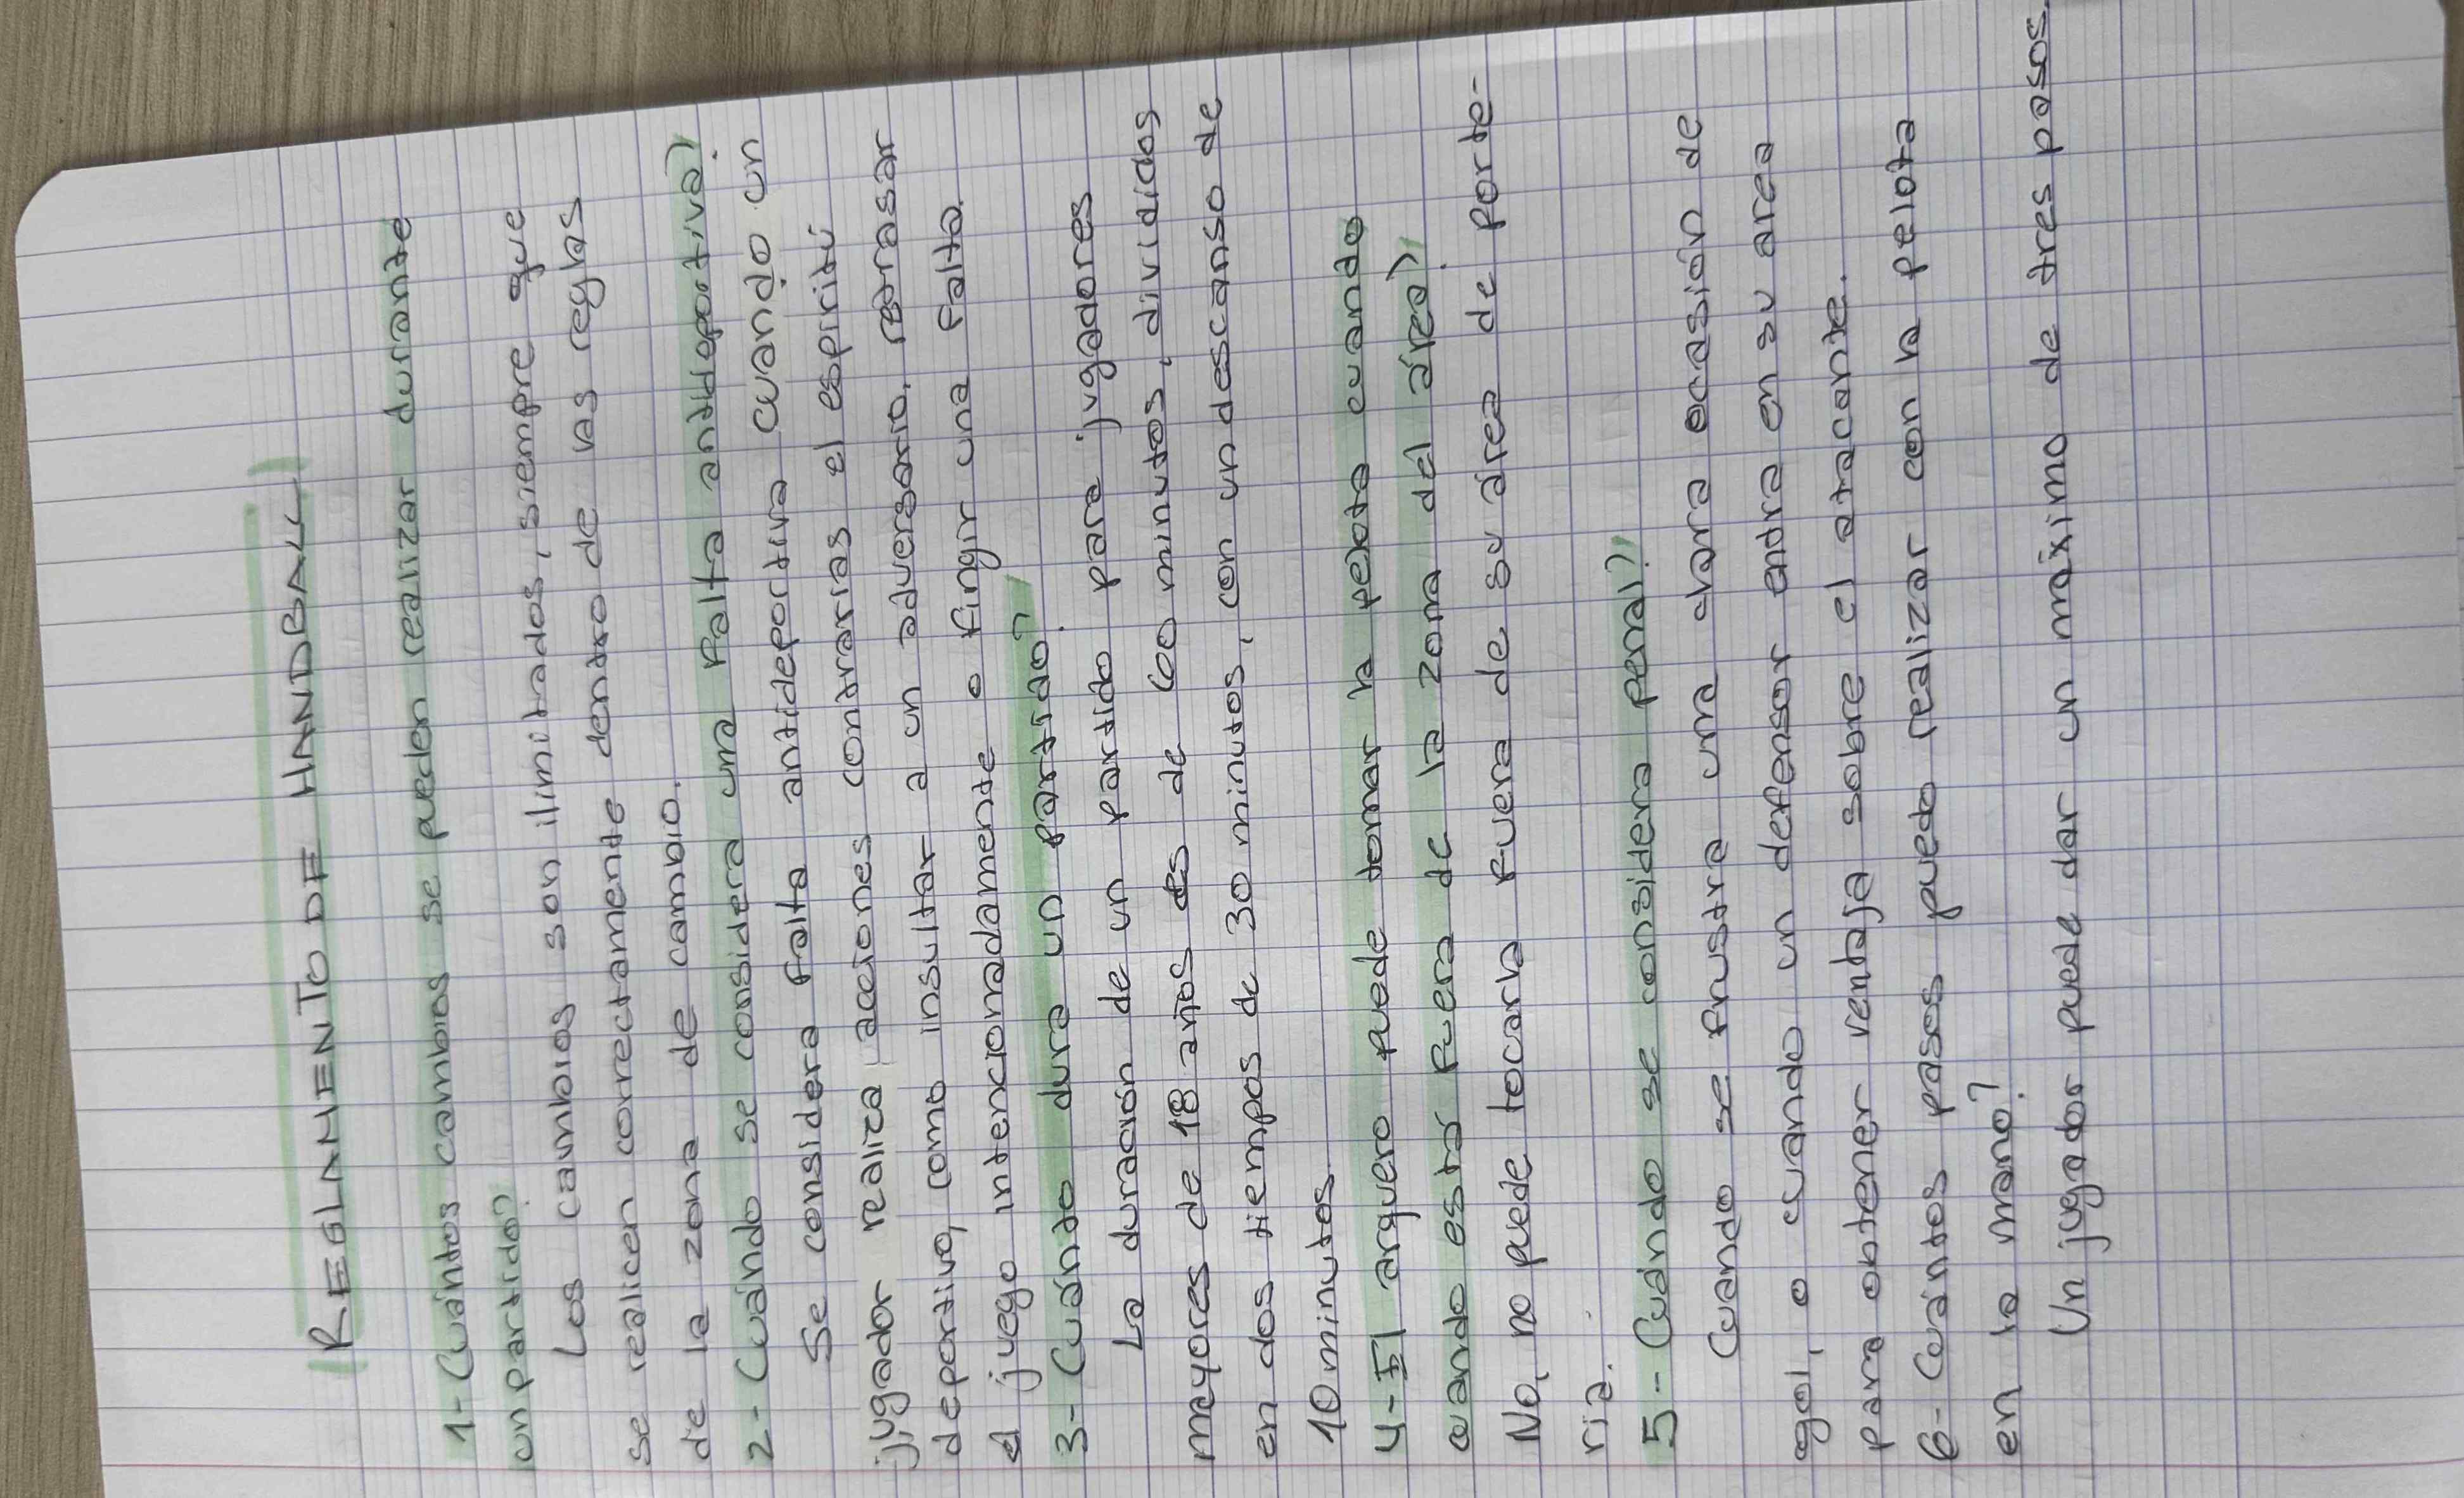 REGLAMENTO DE HANDBALL
1- Cuántos cambios se pueden realizar durante
un partido?
Los cambios son ilimitados, siempre que
se realicen correctamente dentro de las reglas
de la zona de cambio.
2- Cuándo se considera una falta antideportiva?
Se considera falta antideportiva cuando un
jugador realiza acciones contrarias el espiritú
deportivo, como insultar a un adversario, retrasar
el juego intencionadamente o fingir una falta.
3- Cuánto dura un partido?
La duración de un partido para jugadores
mayores de 18 años es de 60 minutos, divididos
en dos tiempos de 30 minutos, con un descanso de
10 minutos.
4- El arquero puede tomar la pelota cuando
cuando está fuera de la zona del área?
No, no puede tocarla fuera de su área de porte-
ria.
5- Cuándo se considera penal?
Cuando se frustra una clara ocasión de
gol, o cuando un defensor entra en su area
para obtener ventaja sobre el atacante.
6- Cuántos pasos puedo realizar con la pelota
en la mano?
Un jugador puede dar un máximo de tres pasos.